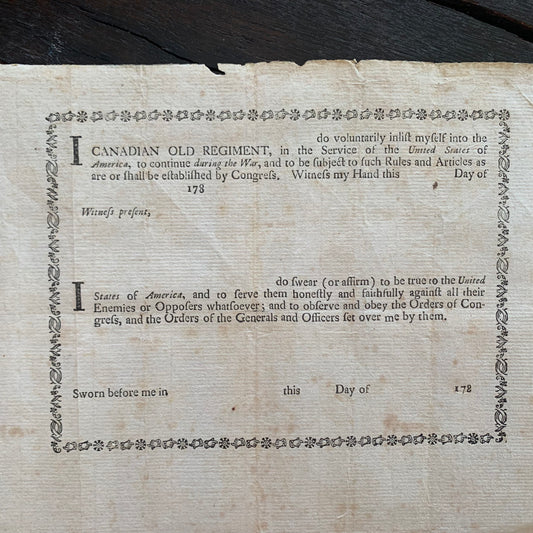 I do voluntarily inliſt myſelf into the
CANADIAN OLD REGIMENT, in the Service of the United States of
America, to continue during the War, and to be ſubject to ſuch Rules and Articles as
are or ſhall be eſtabliſhed by Congreſs. Witneſs my Hand this Day of
178
Witneſs preſent,
I do ſwear (or affirm) to be true to the United
States of America, and to ſerve them honeſtly and faithfully againſt all their
Enemies or Oppoſers whatſoever; and to obſerve and obey the Orders of Con-
greſs, and the Orders of the Generals and Officers ſet over me by them.
Sworn before me in this Day of 178